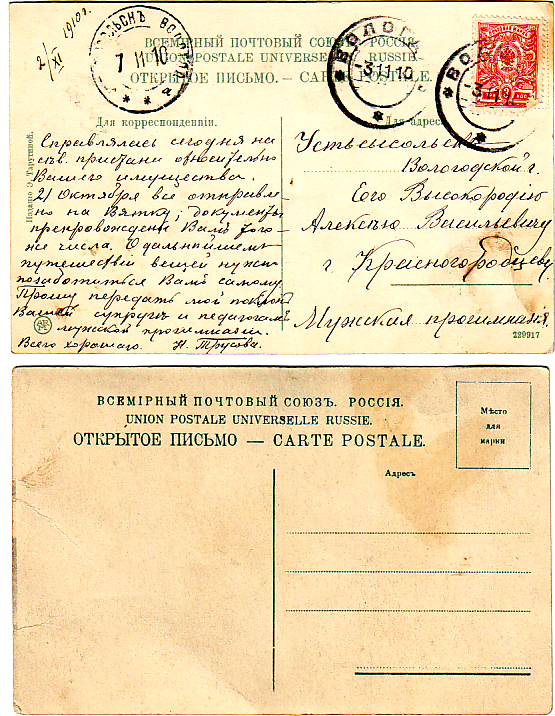 2/XI 1910 г.
7 11 10
ВОЛОГДА
3 11 10
ВСЕМІРНЫЙ ПОЧТОВЫЙ СОЮЗЪ. РОССІЯ
UNION POSTALE UNIVERSELLE RUSSIE
ОТКРЫТОЕ ПИСЬМО. — CARTE POSTALE.
Для корреспонденціи.
Для адреса
Справлялась сегодня на
пристани относительно
Вашего имущества.
21 Октября все отправле-
но на Вятку; документы
препровождены Вамъ того-
же числа. О дальнѣйшемъ
путешествіи вещей нужно
позаботиться Вамъ самому.
Прошу передать мой поклонъ
Вашей супругѣ и педагогамъ
мужской прогимназіи.
Всего хорошаго. Н. Трусова.
Устьсысольскъ
Вологодской г.
Его Высокородію
Алексѣю Васильевичу
г. Красногородцеву
Мужская прогимназія
Изданіе Э. Таругиной.
229917
ВСЕМІРНЫЙ ПОЧТОВЫЙ СОЮЗЪ. РОССІЯ.
UNION POSTALE UNIVERSELLE RUSSIE.
ОТКРЫТОЕ ПИСЬМО — CARTE POSTALE.
Мѣсто
для
марки
Адресъ